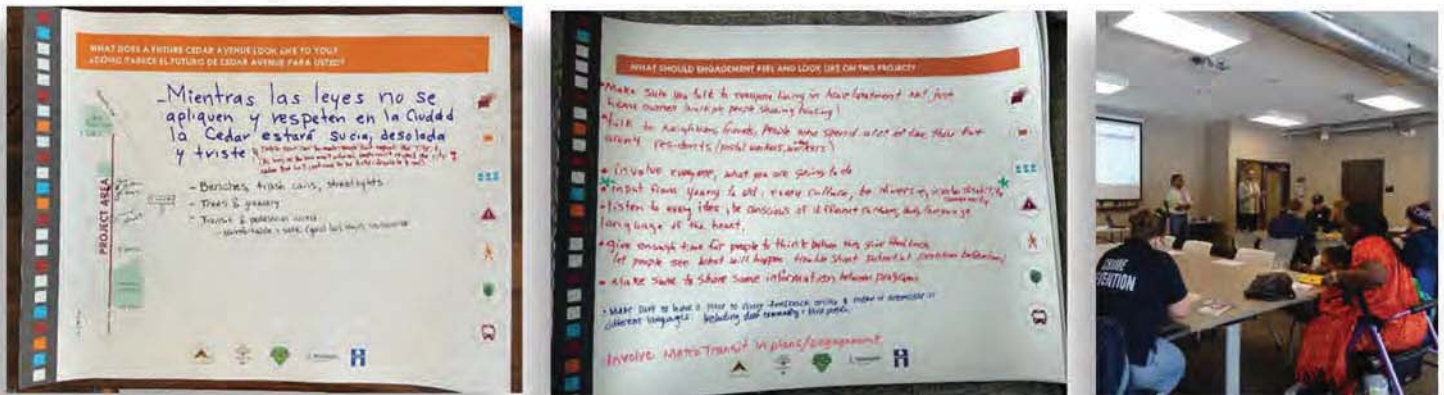 WHAT DOES A FUTURE CEDAR AVENUE LOOK LIKE TO YOU?
¿CÓMO PARECE EL FUTURO DE CEDAR AVENUE PARA USTED?
- Mientras las leyes no se
apliquen y respeten en la Ciudad
la Cedar estará sucia, desolada
y triste
- Benches, trash cans, streetlights
- Trees & greenery
- Transit & pedestrian
comfortable + safe
PROJECT AREA
WHAT SHOULD ENGAGEMENT FEEL AND LOOK LIKE ON THIS PROJECT?
• Make sure you talk to everyone living in house/apartment not just
home owners (multiple people sharing housing)
• talk to neighbors, friends, people who spend a lot of time there but
aren't residents (postal workers, workers)
• involve everyone, what you are going to do
• input from young to old, every culture, be diverse, involve disability
community
• listen to every idea, be conscious of different
language of the heart.
• give enough time for people to think before they give feedback
let people see what will happen trouble shoot potential problems beforehand
• Make sure to share same information between programs
• Make sure to have a place to share feedback online & make it accessible in
different languages. Including deaf community + blind people.
Involve Metro Transit in plans/engagement